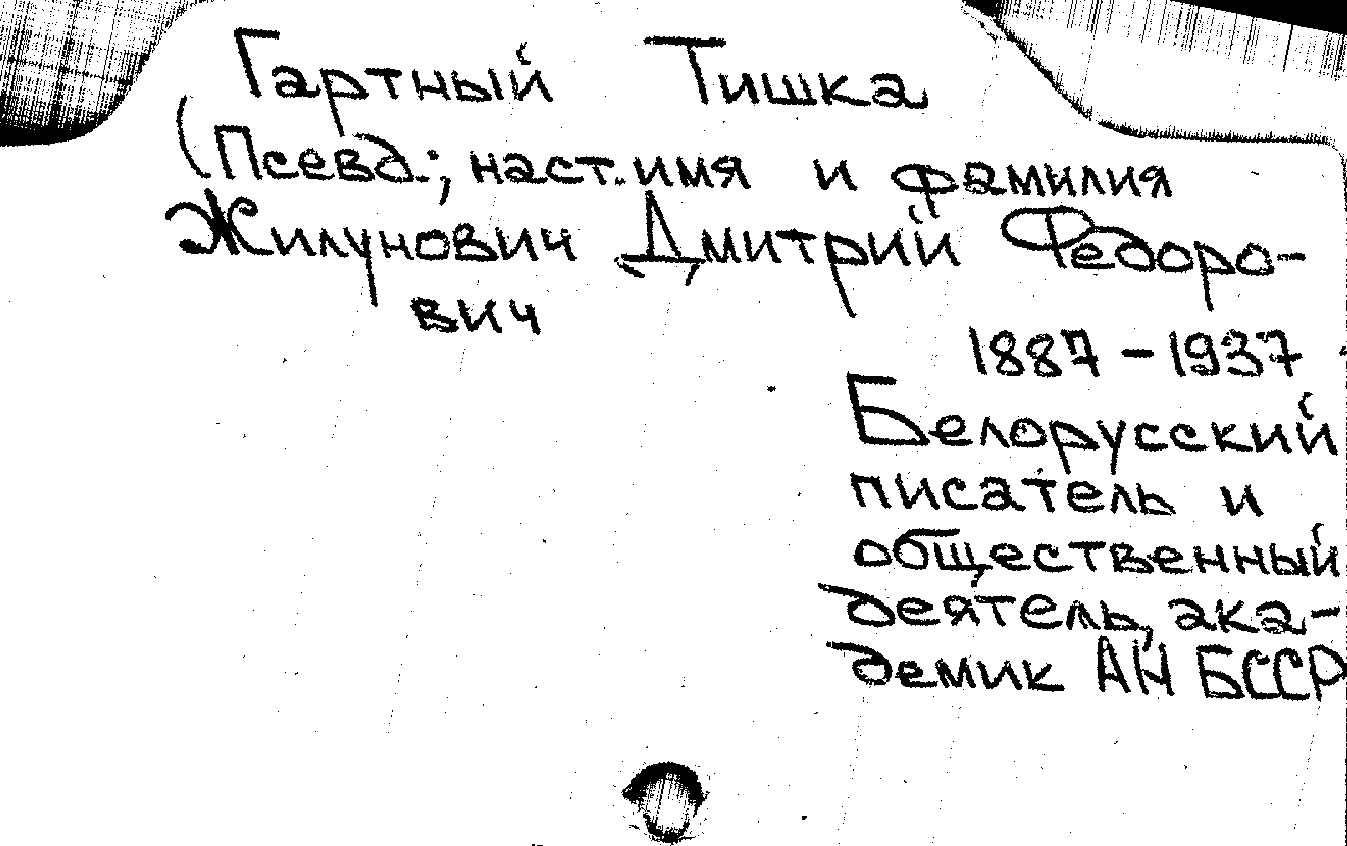 Гартный Тишка
(Псевд.; наст. имя и фамилия
Жилунович Дмитрий Федоро-
вич
1887-1937
Белорусский
писатель и
общественный
деятель, ака-
демик АН БССР